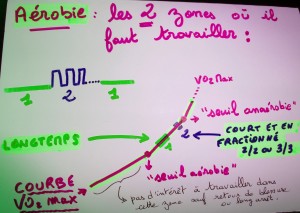 Aérobie : les 2 zones où il
faut travailler :
1 2 1
VO2 max
"seuil anaérobie"
LONGTEMPS
1 2
COURT ET EN
FRACTIONNÉ
2/2 OU 3/3
"seuil aérobie"
COURBE
VO2 MAX
pas d'intérêt à travailler dans
cette zone sauf retour de blessure
ou long arrêt.